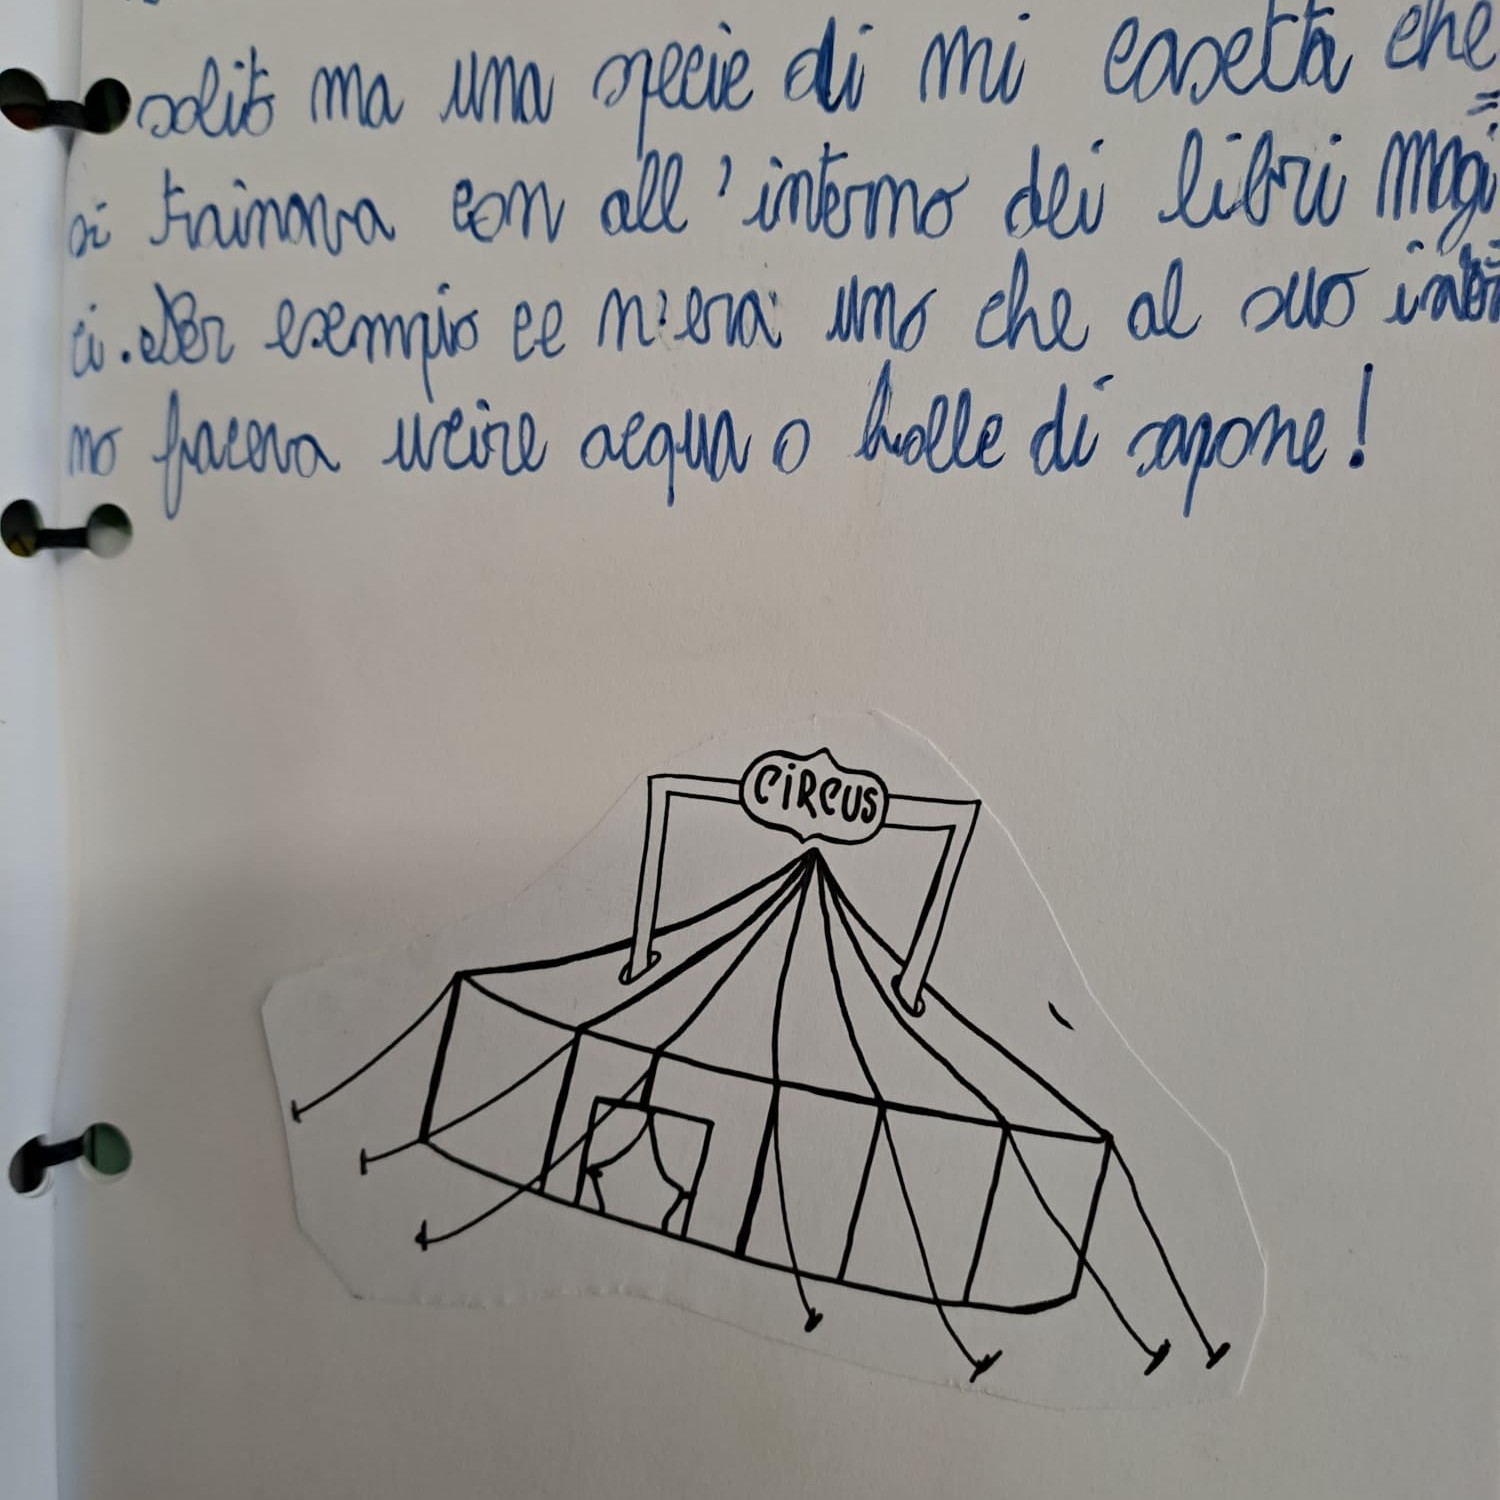 solito ma una specie di mi casetta che
si trainava con all'interno dei libri magi=
ci. Per esempio ce n'era uno che al suo inter=
no faceva uscire acqua o bolle di sapone!
CiRCUS